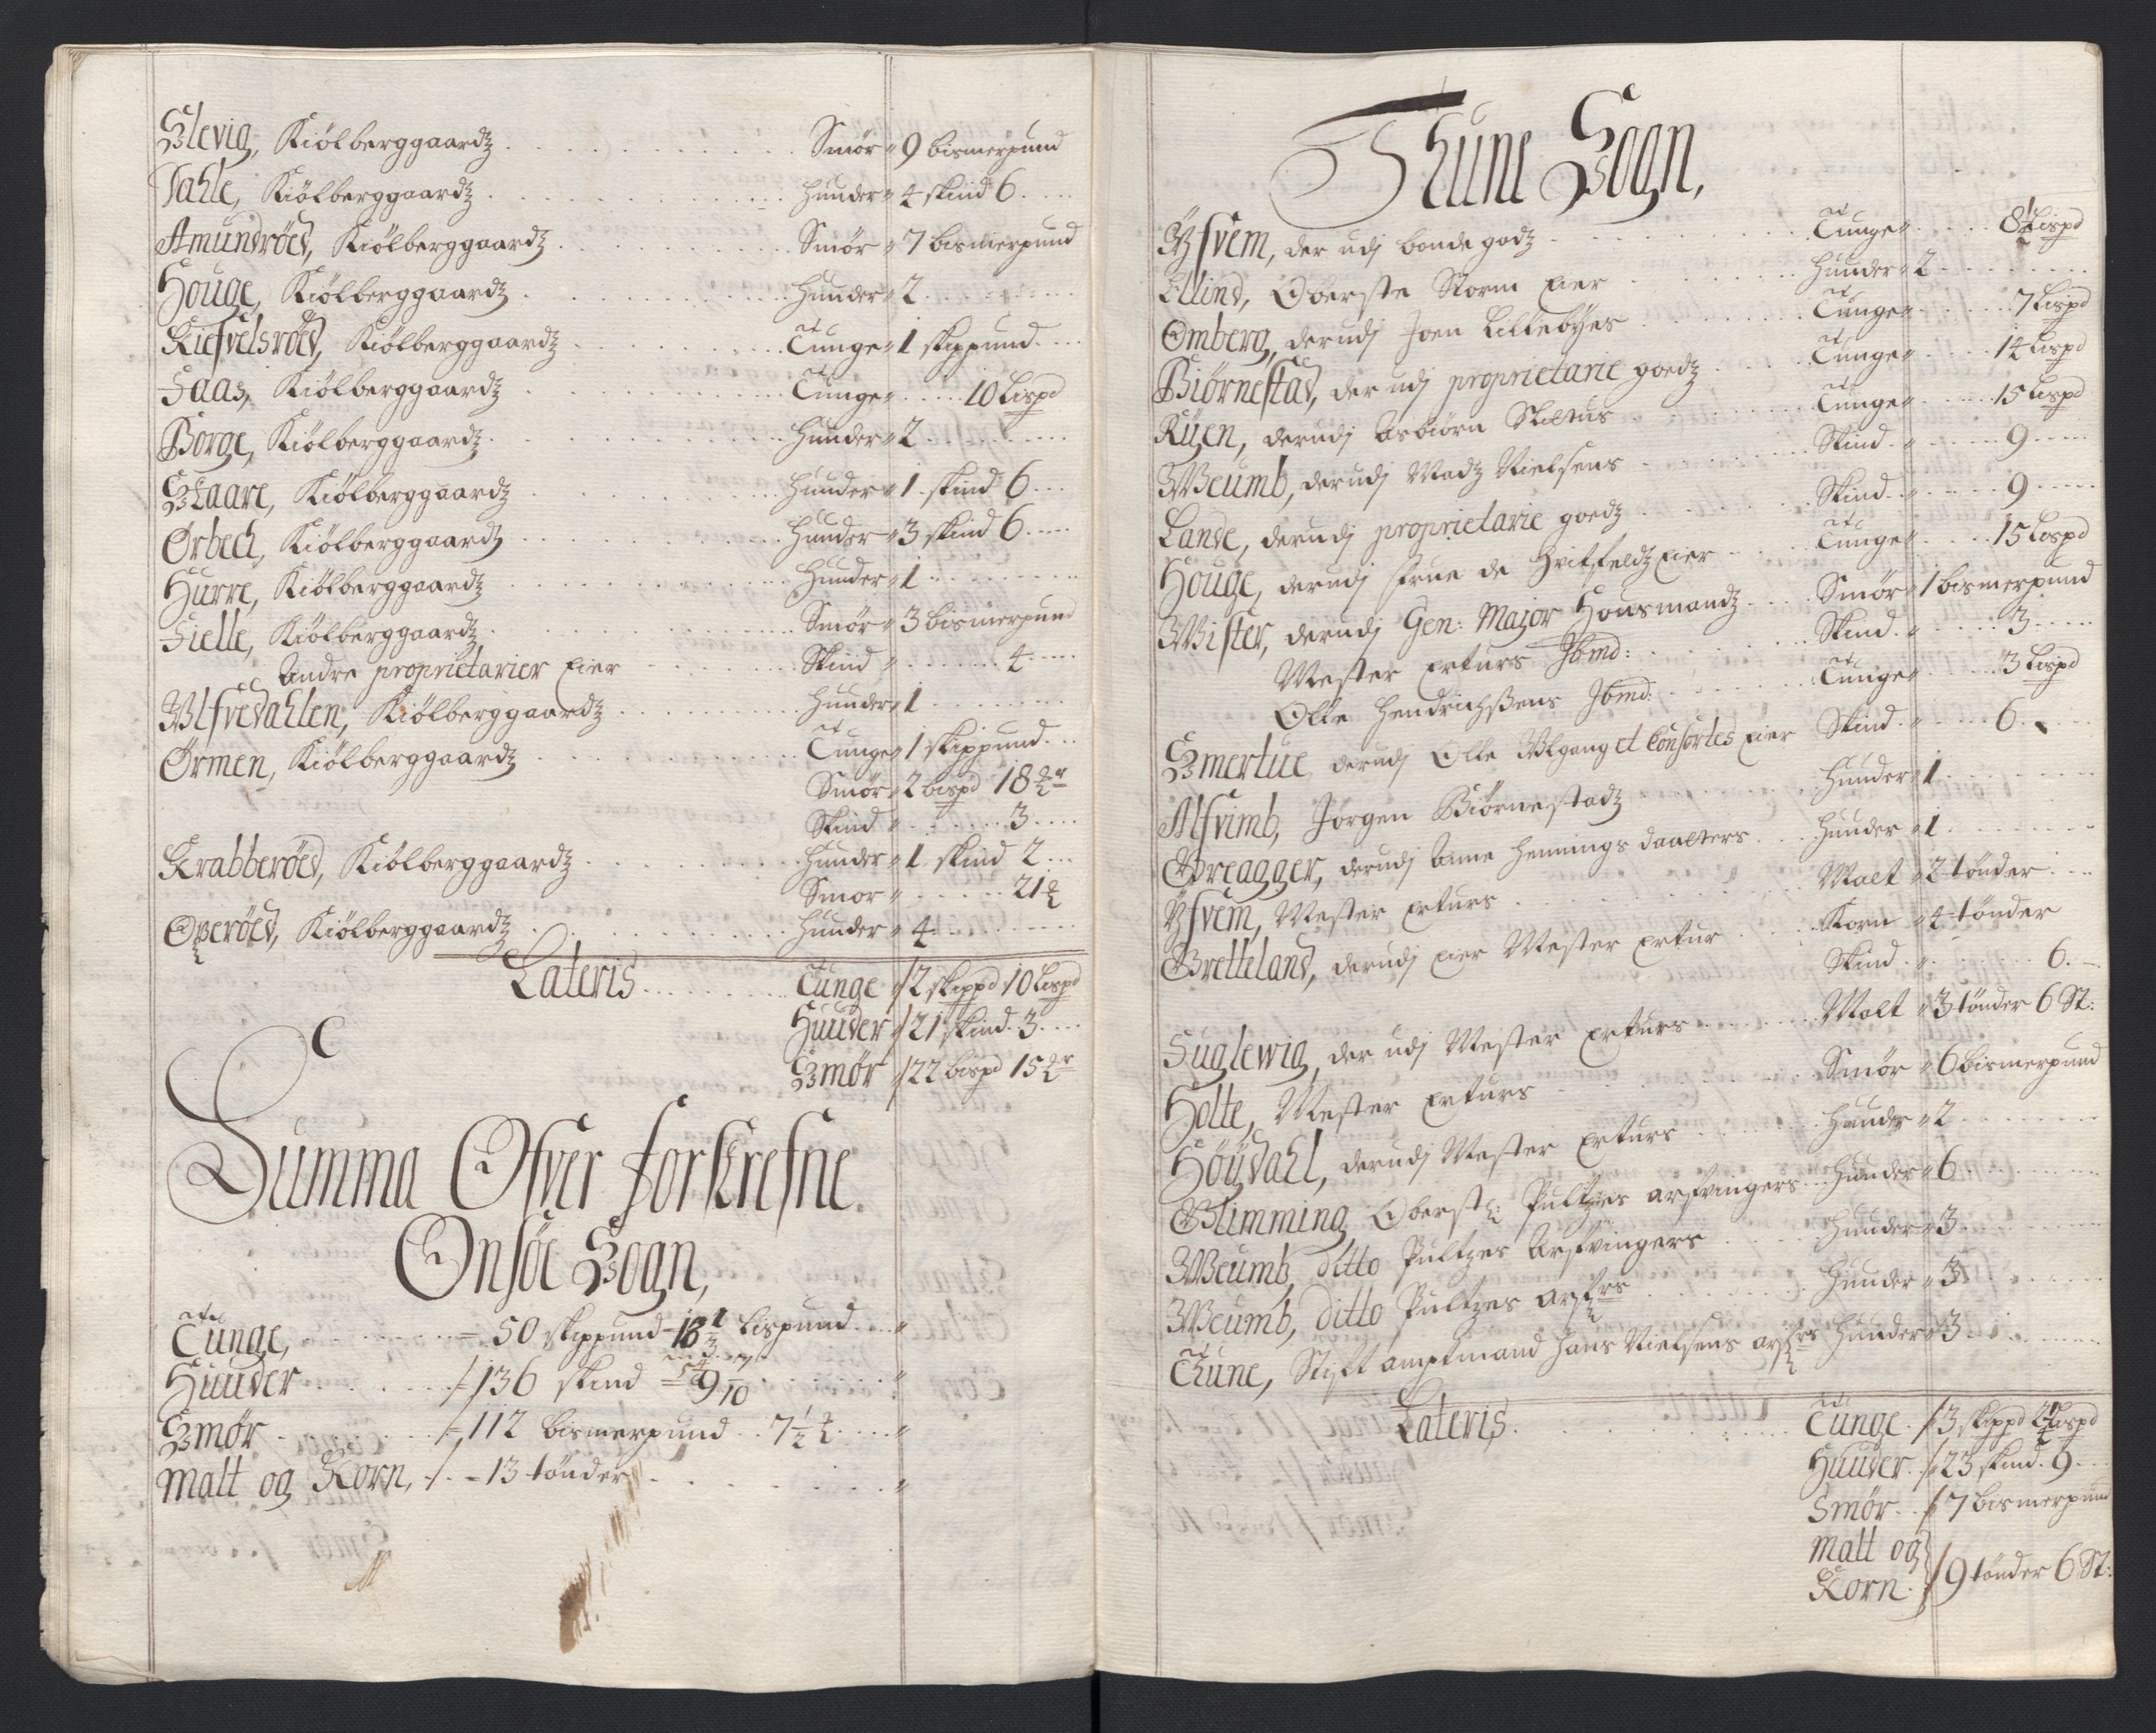 Slevig, Kiølberggaardz . . . Smør „ 9 bismerpund
Dahle, Kiølberggaardz . . . Huuder „ 4 skind 6 . .
Amundrøed, Kiølberggaardz . . . Smør „ 7 bismerpund
Houge, Kiølberggaardz . . . Huuder „ 2 . . .
Kiefvelsrøed, Kiølberggaardz . . . Tunge „ 1 skippund . .
Haas, Kiølberggaardz . . . Tunge „ . . 10 Lispd
Borge, Kiølberggaardz . . . Huuder „ 2 . . .
Staare, Kiølberggaardz . . . Huuder „ 1 skind 6 . .
Ørbech, Kiølberggaardz . . . Huuder „ 3 skind 6 . .
Hurre, Kiølberggaardz . . . Huuder „ 1 . . .
Fielle, Kiølberggaardz . . . Smør „ 3 bismerpund
Andre proprietarier Eier . . . Skind „ . . 4 . .
Ulfvedahlen, Kiølberggaardz . . . Huuder „ 1 . . .
Ørmen, Kiølberggaardz . . . Tunge „ 1 skippund . .
Smør „ 2 bispd 18
Skind „ . . 3 . .
Krabberøed, Kiølberggaardz . . . Huuder „ 1 skind 2 . .
Smør „ . . 21
Ouerøed, Kiølberggaardz . . . Huuder „ 4 . . .
Lateris . . . Tunge // 2 skippd 10 Lispd
Huuder // 21 skind 3 . .
Smør // 22 bispd 15
Summa Ofver forskrefne
Onsøe Sogn,
Tunge, . . . 50 skippund 18 1/3 Lispund . . „
Huuder . . . 136 skind 9 . . „
Smør . . . 112 bismerpund . 7 1/2 . . „
Malt og Korn, . . 13 tønder . . . „
Thune Sogn,
Yfvem, der udj bonde godz . . . Tunge „ . . 8 1/2 Lispd
Ellind, Oberste Storm Eier . . . Huuder „ 2 . . .
Omberg, derudj Joen Lillebyes . . . Tunge „ . . 7 Lispd
Biørnestad, der udj proprietarie goedz . . . Tunge „ . . 14 Lispd
Rüen, derudj Asbiørn . . . Tunge „ . . 15 Lispd
Weumb, derudj Madz Nielsens . . . Skind . „ . . 9 . .
Lande, derudj proprietarie goedz . . . Skind . „ . . 9 . .
Houge, derudj Frue de Hvitfeldz Eier . . . Tunge „ . . 15 Lispd
Wister, derudj Gen: Major Housmandz . . Smør „ 1 bismerpund
Mester Erturs Ibmd: . . . Skind . „ . . 3 . .
Olle Hendrichßens Ibmd: . . . Tunge „ . . 3 Lispd
Smertue, derudj Olle Wlgang et Consortes Eier Skind . „ . . 6 . .
Alfvimb, Jørgen Biørnestadz . . . Huuder „ 1 . . .
Greagger, derudj Anne Hennings daatters . . Huuder „ 1 . . .
Yfvem, Mester Erturs . . . Malt „ 2 tønder . .
Gretteland, derudj Eier Mester Ertur . . . Korn „ 4 tønder
Skind . „ . . 6 . .
Fuglewig, der udj Mester Erturs . . . Malt „ 3 tønder 6 St:
Holte, Mester Erturs . . . Smør „ 6 bismerpund
Høydahl, derudj Mester Erturs . . . Huuder „ 2 . . .
Glimming, Oberstl: Pultzes arfvingers . . Huuder „ 6 . . .
Weumb, ditto Pultzes Arfvingers . . . Huuder „ 3 . . .
Weumb, ditto Pultzes arf:rs . . . Huuder „ 3 . . .
Thune, Stift amptmand Hans Nielsens arf:rs Huuder „ 3 . . .
Lateris . . . Tunge . // 3 skippd 2 1/2 Lispd
Huuder . // 23 skind . 9 . .
Smør . . // 7 bismerpund
Malt og
Korn . // 9 tønder 6 St: